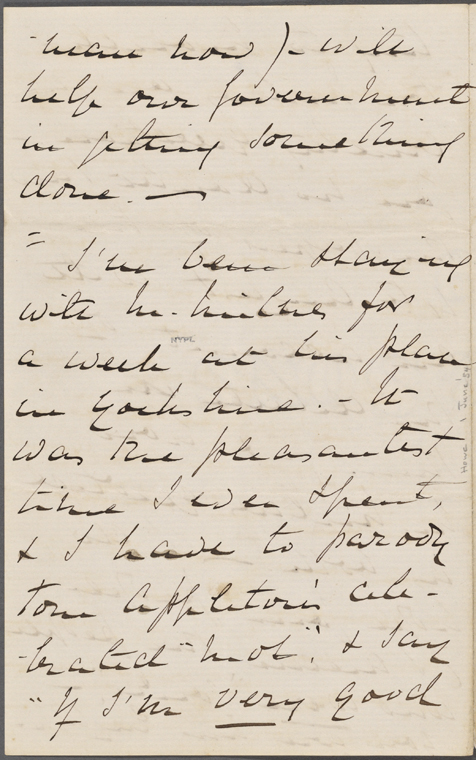 man now) - will
help our Government
in getting something
done. —
= I've been staying
with Mr. Milnes for
a week at his place
in Yorkshire. - It
was the pleasantest
time I ever spent,
& I have to parody
Tom Appleton's cele-
brated "mot", & say
"If I'm very good
Howe 1 June '54